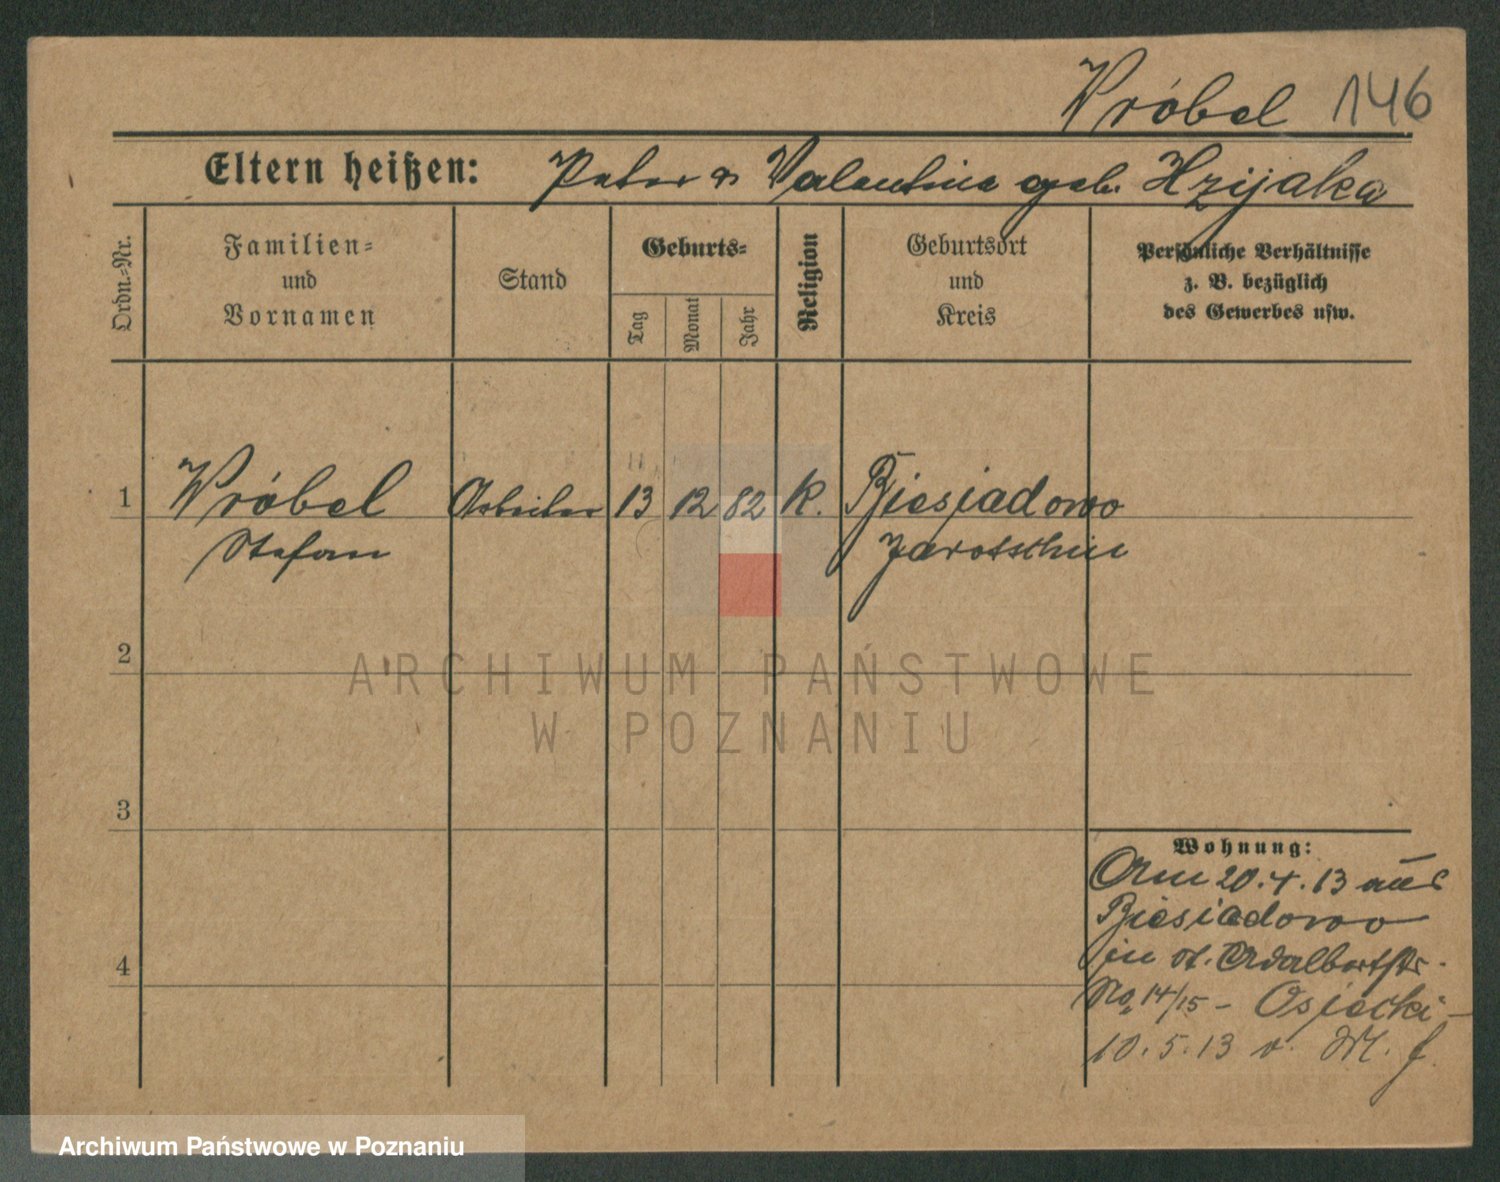 Wróbel 146
Eltern heißen: Peter u Valentine geb.
Ordn.-Nr.
Familien-
und
Vornamen
Stand
Geburts-
Tag
Monat
Jahr
Religion
Geburtsort
und
Kreis
Persönliche Verhältnisse
z. B. bezüglich
des Gewerbes usw.
1 Wróbel Arbeiter 13 12 82 K. Biesiadowo
Stefan Jarotschin
2
ARCHIWUM PAŃSTWOWE
W POZNANIU
3
Wohnung:
Am 20.4.13 aus
Biesiadowo
in St. Adalbertstr.
4
No 14/15 - Osiecki -
10.5.13 v.
Archiwum Państwowe w Poznaniu